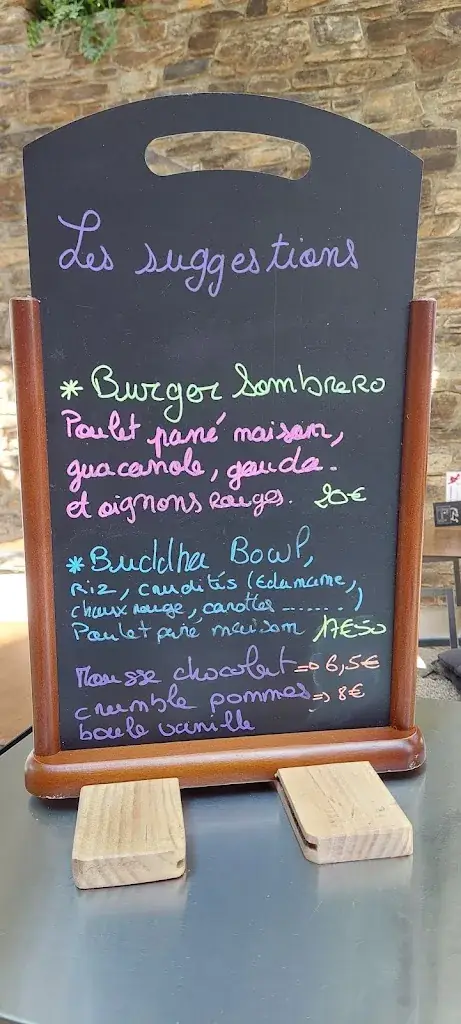 Les suggestions
* Burger Sombrero
Poulet pané maison,
guacamole, gouda.
et oignons Rouges. 20€
* Buddha Bowl,
Riz, crudités (Edamame,
choux rouge, carottes .......)
Poulet pané maison 17€50
Mousse chocolat => 6,5€
crumble pommes => 8€
boule vanille